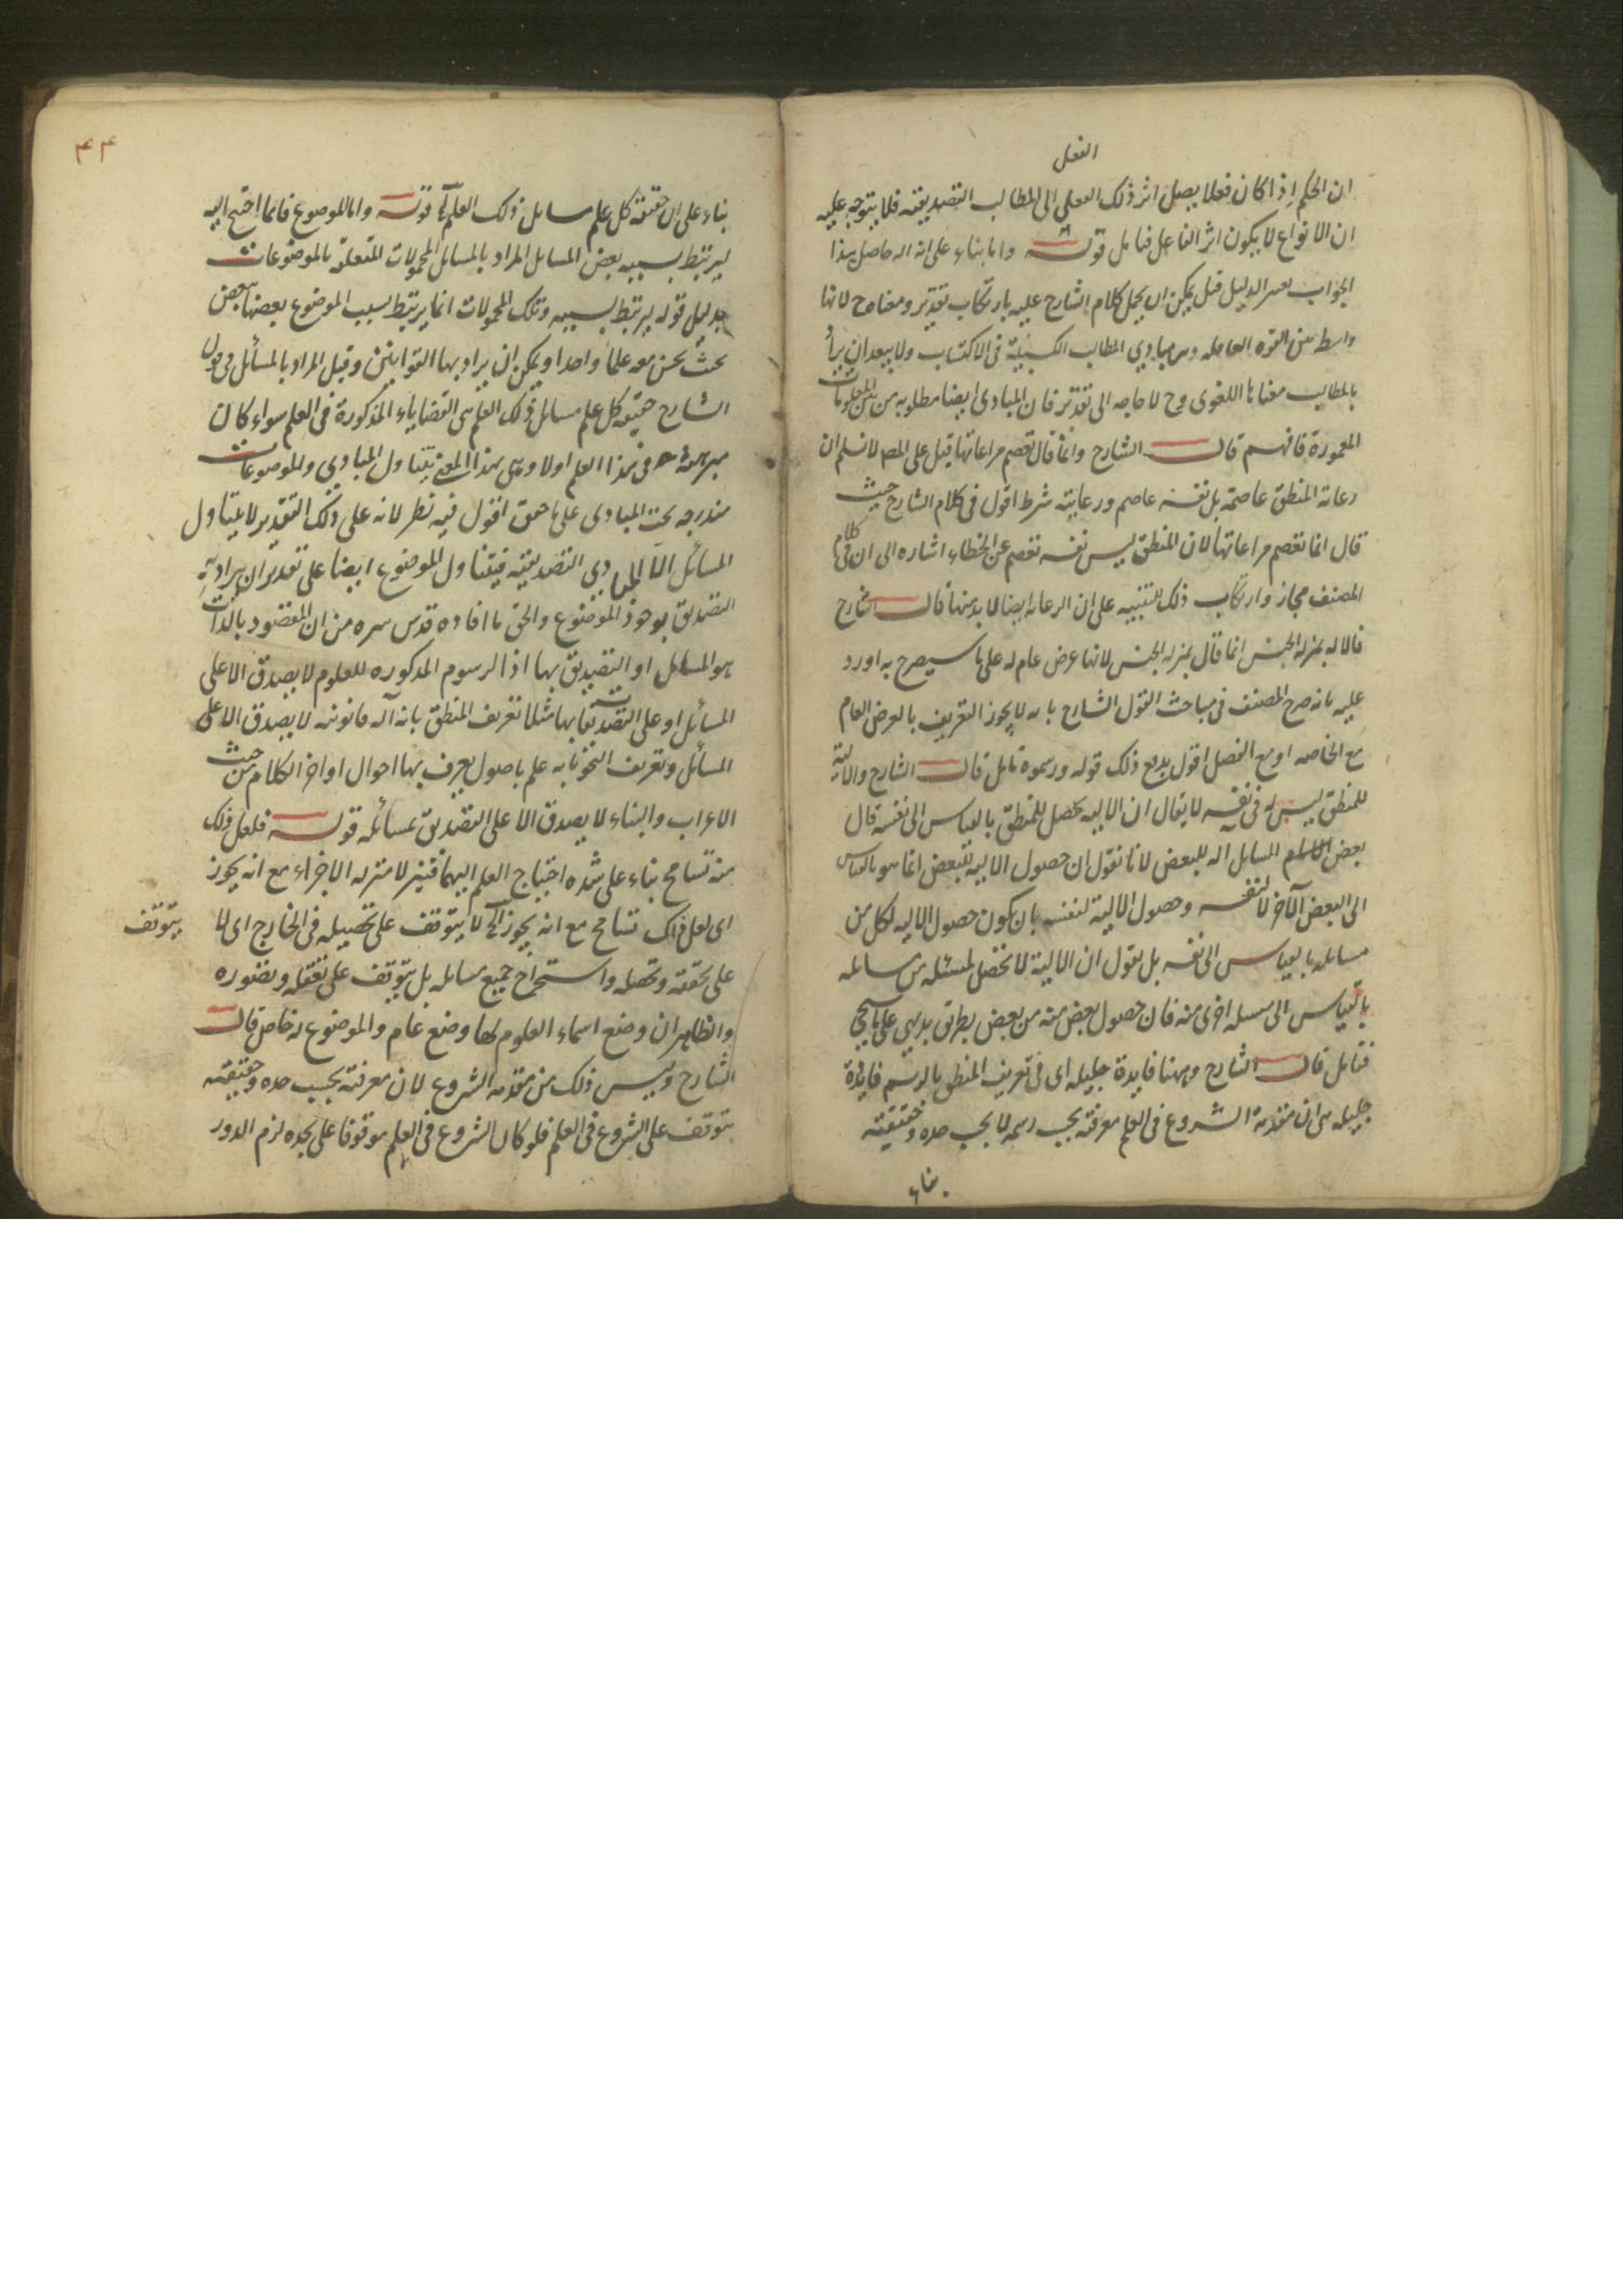 الفعل
ان الحكم اذا كان فعلا يصل اثر ذلك الفعلى الى المطالب التصديقيه فلا يتوجه عليه
ان الانواع لا يكون اثر الفاعل فتامل قوله واما بناء على انه اله حاصل هذا
الجواب الدليل قيل يمكن ان يحمل كلام الشارح عليه بارتكاب تقدير ومعناه ح لانها
واسطه بين القوه العاقله وبين مبادى المطالب الكسبيه فى الاكتساب ولا يبعد ان يراد
بالمطالب معناها اللغوى وح لا حاجه الى تقدير فان المبادى ايضا مطلوبه من بين المعلومات
المخزونة فافهم قال الشارح وانما قال تعصم مراعاتها قيل على المصـ لا نسلم ان
رعاية المنطق عاصمة بل نفسه عاصم ورعايته شرط اقول فى كلام الشارح حيث
قال انما تعصم مراعاتها لان المنطق ليس نفسه تعصم عن الخطاء اشاره الى ان فى كلام
المصنف مجاز وارتكاب ذلك للتنبيه على ان الرعايه ايضا لا بد منها قال الشارح
فالاله بمنزله الجنس انما قال بمنزله الجنس لانها عرض عام له على ما سيصرح به اورد
عليه بانه صرح المصنف فى مباحث القول الشارح بانه لا يجوز التعريف بالعرض العام
مع الخاصه او مع الفصل اقول يدفع ذلك قوله ورسموه تامل قال الشارح والاليه
للمنطق ليس له فى نفسه لا يقال ان الاليه تحصل للمنطق بالقياس الى نفسه قال
بعض المسايل اله للبعض لانا نقول ان حصول الاليه للبعض انما هو بالقياس
الى البعض الآخر لا لنفسه وحصول الالية لنفسه بان يكون حصول الاليه لكل من
مسايله بالقياس الى نفسه بل نقول ان الالية لا تحصل لمسئله من مسايله
بالقياس الى مسله اخرى منه فان حصول بعض منه من بعض بطريق بديهى على ما سيجئ
فتامل قال الشارح وههنا فايدة جليله اى فى تعريف المنطق بالرسم فايدة
جليله هى ان مقدمة الشروع فى العلم معرفته بحسب رسمه لا بحسب حده وحقيقته
بناء
٤٤
بناء على ان حقيقة كل علم مسايل ذلك العلم الخ قوله واما الموضوع فانما احتيج اليه
ليرتبط بسببه بعض المسايل المراد بالمسايل المحمولات المتعلقه بالموضوعات
بدليل قوله ليرتبط بسببه وتلك المحمولات انما يرتبط بسبب الموضوع بعضها ببعض
بحيث يحسن معه علما واحدا ويمكن ان يراد بها القوانين وقيل المراد بالمسائل فى قول
الشارح حقيقه كل علم مسائل ذلك العلم هى القضاياء المذكورة فى العلم سواء كان
مبرهنة فى هذا العلم اولا وهى بهذا المعنى يتناول المبادى والموضوعات
مندرجه تحت المبادى على ما حقق اقول فيه نظر لانه على ذلك التقدير لا يتناول
المسائل الا المبادى التصديقيه فيتناول الموضوع ايضا على تقدير ان يراد به
التصديق بوجود الموضوع والحق ما افاده قدس سره من ان المقصود بالذات
هو المسايل او التصديق بها اذ الرسوم المذكوره للعلوم لا يصدق الا على
المسائل او على التصديقات بها مثلا تعريف المنطق بانه آله قانونيه لا يصدق الا على
المسائل وتعريف النحو بانه علم باصول يعرف بها احوال اواخر الكلام من حيث
الاعراب والبناء لا يصدق الا على التصديق بمسائله قوله فلعل ذلك
منه تسامح بناء على شده احتياج العلم اليهما فنزلا منزله الاجزاء مع انه يجوز
اى لعل ذلك تسامح مع انه يجوز الخ لا يتوقف على تحصيله فى الخارج اى لا يتوقف
على تحققه وتحصله واستخراج جميع مسايله بل يتوقف على تعقله وتصوره
والظاهر ان وضع اسماء العلوم لها وضع عام والموضوع له خاص قال
الشارح وليس ذلك من مقدمه الشروع لان معرفته بحسب حده وحقيقته
يتوقف على الشروع فى العلم فلو كان الشروع فى العلم موقوفا على حده لزم الدور